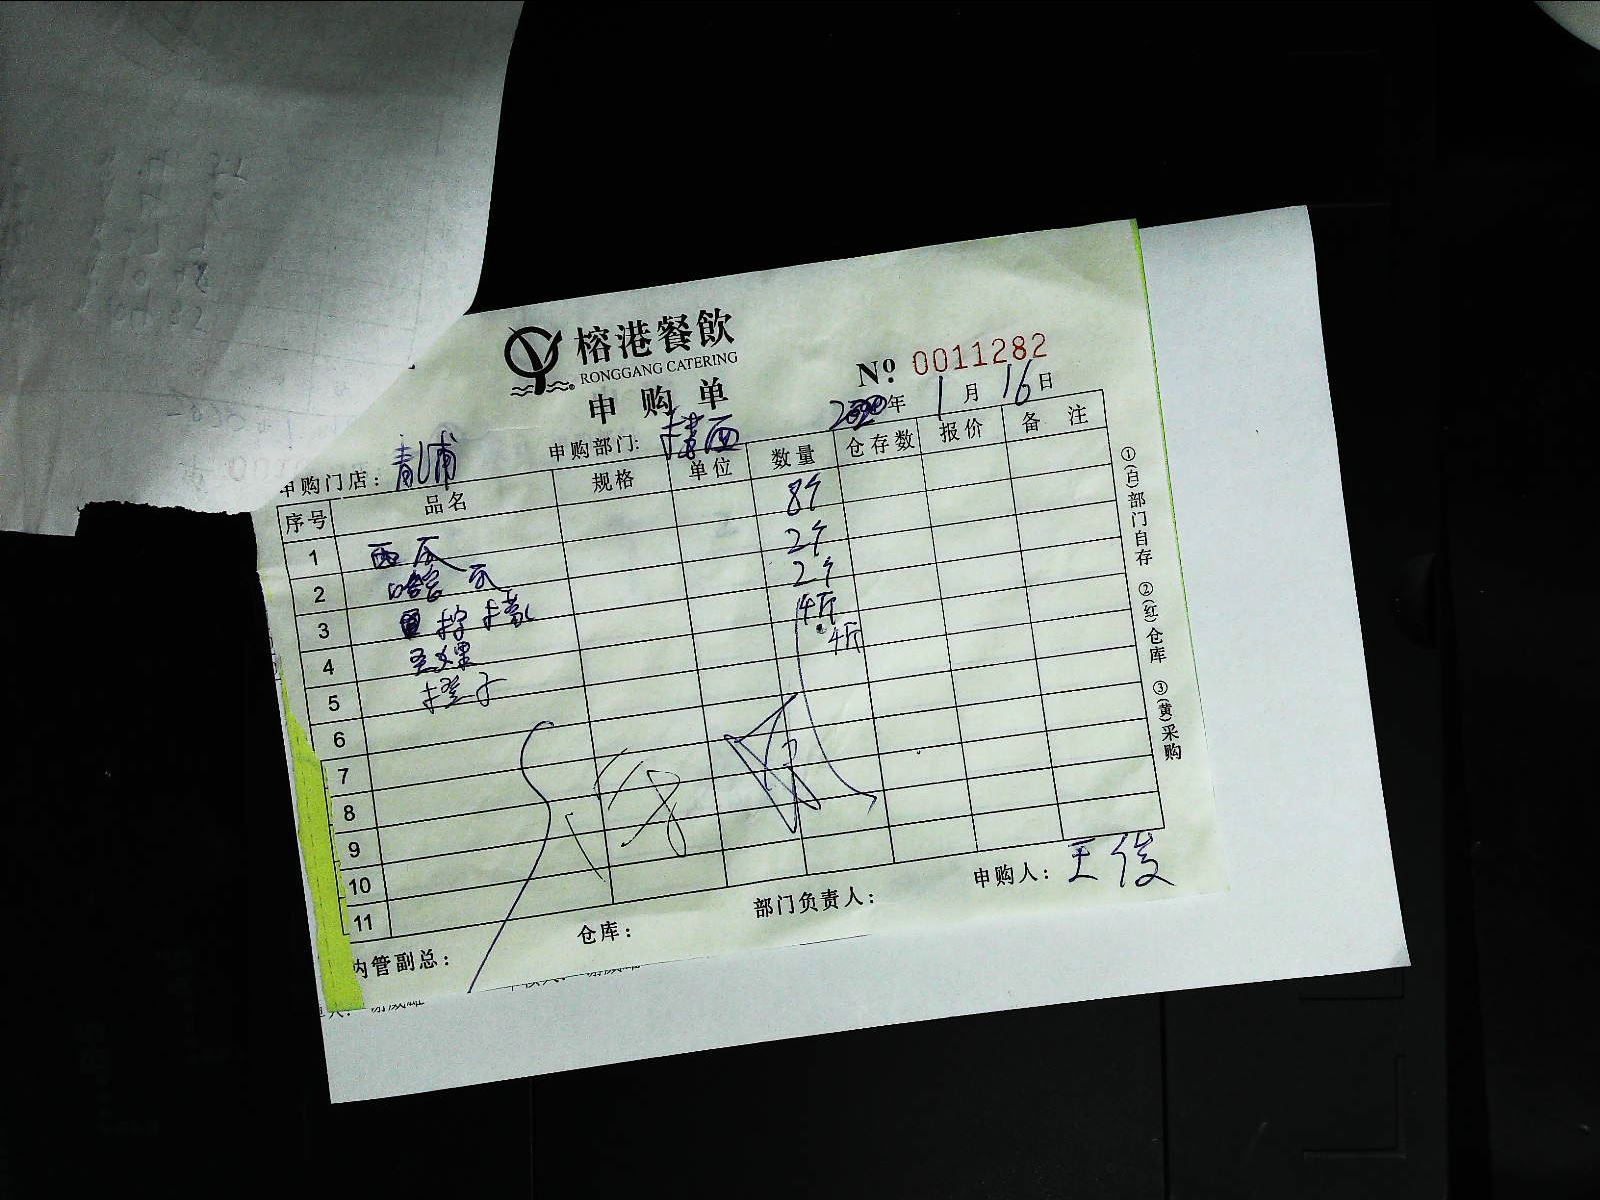 榕港餐飲
RONGGANG CATERING
申购单
Nº 0011282
2020年 1月 16日
申购门店: 青浦
申购部门:
序号 品名 规格 单位 数量 仓存数 报价 备注
1 西瓜 8个
2 哈密瓜 2个
3 柠檬 2个
4 圣女果 4斤
5 橙子 4斤
6
7
8
9
10
11
①(白)部门自存 ②(红)仓库 ③(黄)采购
内管副总: 仓库: 部门负责人: 申购人: 王俊